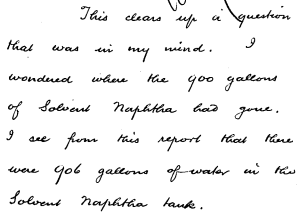 This clears up a question
that was in my mind. I
wondered where the 900 gallons
of Solvent Naphtha had gone.
I see from this report that there
were 906 gallons of water in the
Solvent Naphtha tank.